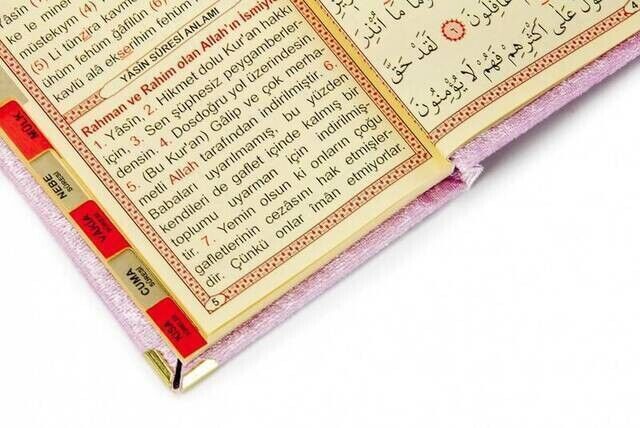 ke le mine
müstekıym (4) Li tünzi
(5)
ühüm fehüm ğâfilûn (6)
kavlü alâ ekserihim fehüm
YÂSÎN SÛRESİ ANLAMI
Rahman ve Rahim olan Allah'ın İsmiyle
1. Yâsîn, 2. Hikmet dolu Kur'an hakkı
için, 3. Sen şüphesiz peygamberler-
densin. 4. Dosdoğru yol üzerindesin.
5. (Bu Kur'an) Gâlip ve çok merha-
metli Allah tarafından indirilmiştir. 6.
Babaları uyarılmamış, bu yüzden
kendileri de gaflet içinde kalmış bir
toplumu uyarman için indirilmiş-
tir. 7. Yemin olsun ki onların çoğu
gafletlerinin cezasını hak etmişler-
dir. Çünkü onlar îmân etmiyorlar.
5
مَا أُنْذِرَ
غَافِلُونَ ﴿٦﴾ لَقَدْ حَقَّ
الْقَوْلُ عَلَى أَكْثَرِهِمْ فَهُمْ لَا يُؤْمِنُونَ
MÜLK
NEBE
SÛRESİ
VÂKIA
SÛRESİ
CUMA
SÛRESİ
KISA